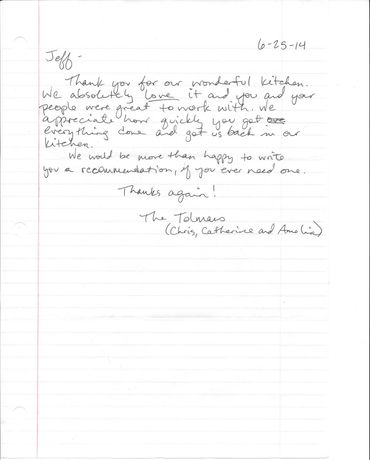 6-25-14
Jeff -
Thank you for our wonderful kitchen.
We absolutely love it and you and your
people were great to work with. We
appreciate how quickly you got
everything done and got us back in our
kitchen.
We would be more than happy to write
you a recommendation, if you ever need one.
Thanks again!
The Tolmans
(Chris, Catherine and Amelia)